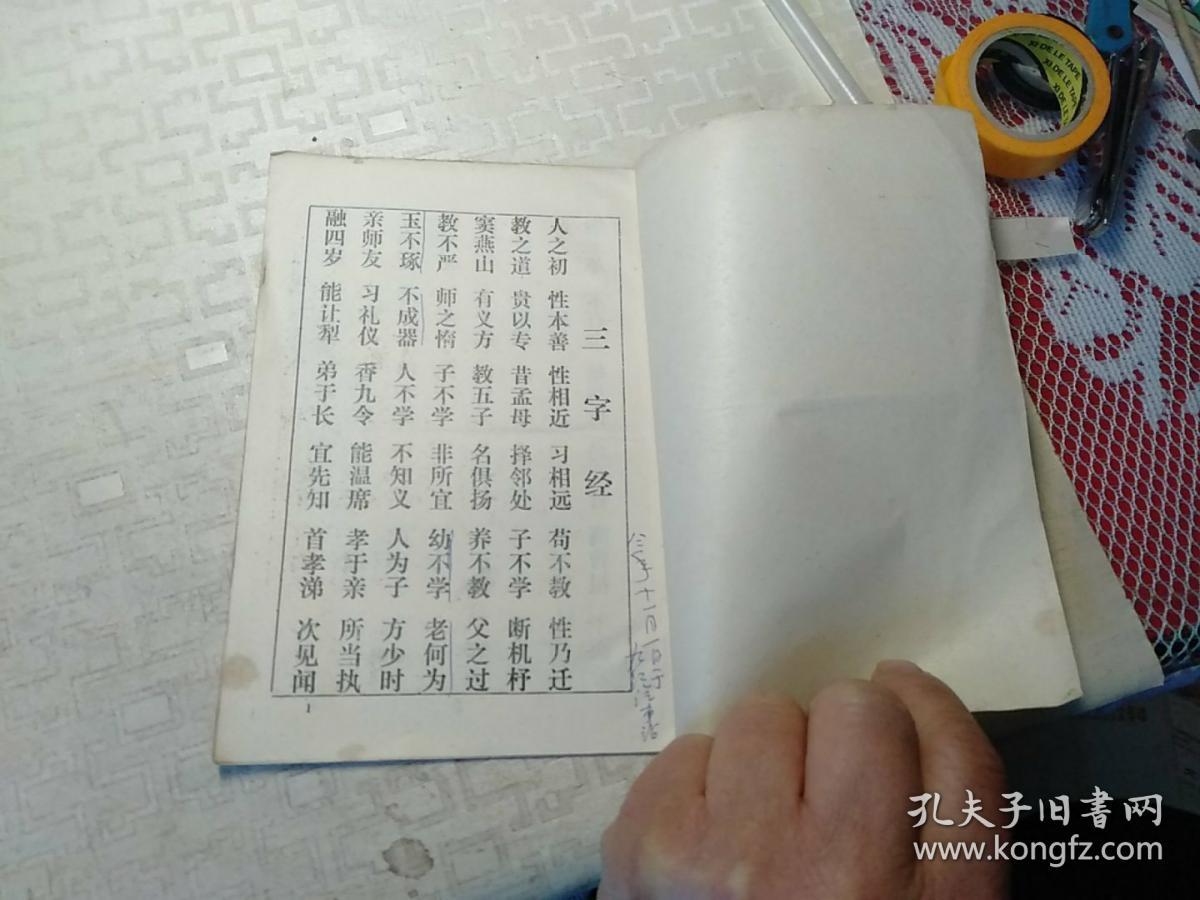 三字经
人之初 性本善 性相近 习相远 苟不教 性乃迁
教之道 贵以专 昔孟母 择邻处 子不学 断机杼
窦燕山 有义方 教五子 名俱扬 养不教 父之过
教不严 师之惰 子不学 非所宜 幼不学 老何为
玉不琢 不成器 人不学 不知义 人为子 方少时
亲师友 习礼仪 香九令 能温席 孝于亲 所当执
融四岁 能让犁 弟于长 宜先知 首孝涕 次见闻
1
十一月一日
XI DE LE TAPE
XI DE LE TAPE
孔夫子旧書网
www.kongfz.com